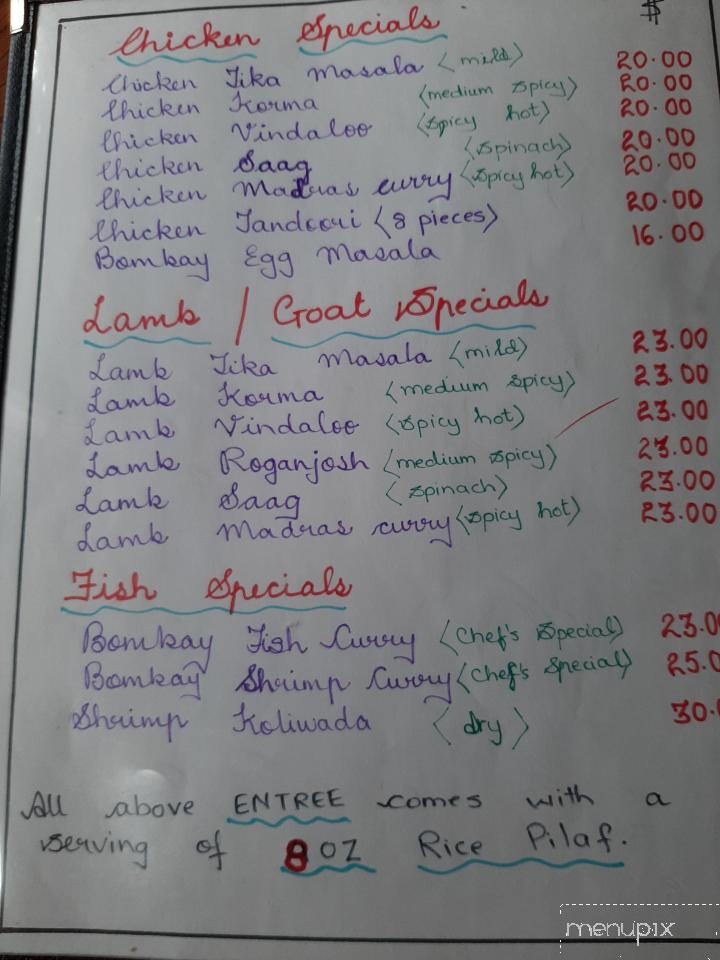 $
Chicken Specials
Chicken Tika Masala <mild> 20.00
Chicken Korma <medium spicy> 20.00
Chicken Vindaloo <spicy hot> 20.00
Chicken Saag <spinach> 20.00
Chicken Madras curry <spicy hot> 20.00
Chicken Tandoori <8 pieces> 20.00
Bombay Egg Masala 16.00
Lamb / Goat Specials
Lamb Tika Masala <mild> 23.00
Lamb Korma <medium spicy> 23.00
Lamb Vindaloo <spicy hot> 23.00
Lamb Roganjosh <medium spicy> 23.00
Lamb Saag <spinach> 23.00
Lamb Madras curry <spicy hot> 23.00
Fish Specials
Bombay Fish Curry <Chef's Special> 23.0
Bombay Shrimp Curry <Chef's Special> 25.0
Shrimp Koliwada <dry> 30.
All above ENTREE comes with a
serving of 8 OZ Rice Pilaf.
menupix